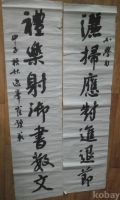 小學句
灑掃應對進退節
禮樂射御書數文
kobay